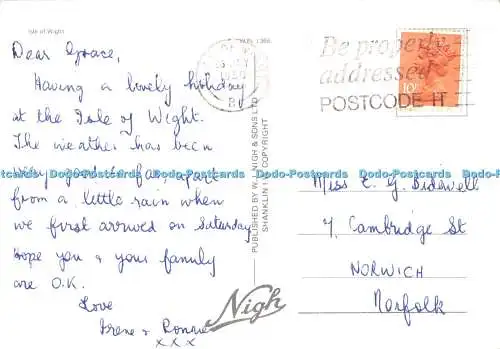 Isle of Wight
Dear Grace,
Having a lovely holiday
at the Isle of Wight.
The weather has been
very good so far apart
from a little rain when
we first arrived on Saturday
hope you & your family
are O.K.
Love
Irene & Ronnie
x x x
PUBLISHED BY W.J. NIGH & SONS LTD
SHANKLIN I.W. COPYRIGHT
Nigh
1980
Be properly
addressed
POSTCODE IT
10
Miss E. G. Bidewell
7, Cambridge St
NORWICH
Norfolk
Dodo-Postcards Dodo-Postcards Dodo-Postcards Dodo-Postcards Dodo-Postcards Dodo-Postcards